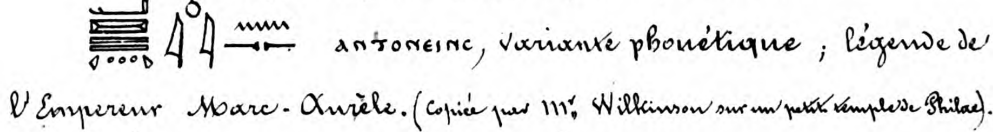 ANTONEINC, variante phonétique ; légende de
l'Empereur Marc-Aurèle. (Copiée par Mr. Wilkinson sur un petit temple de Philae).